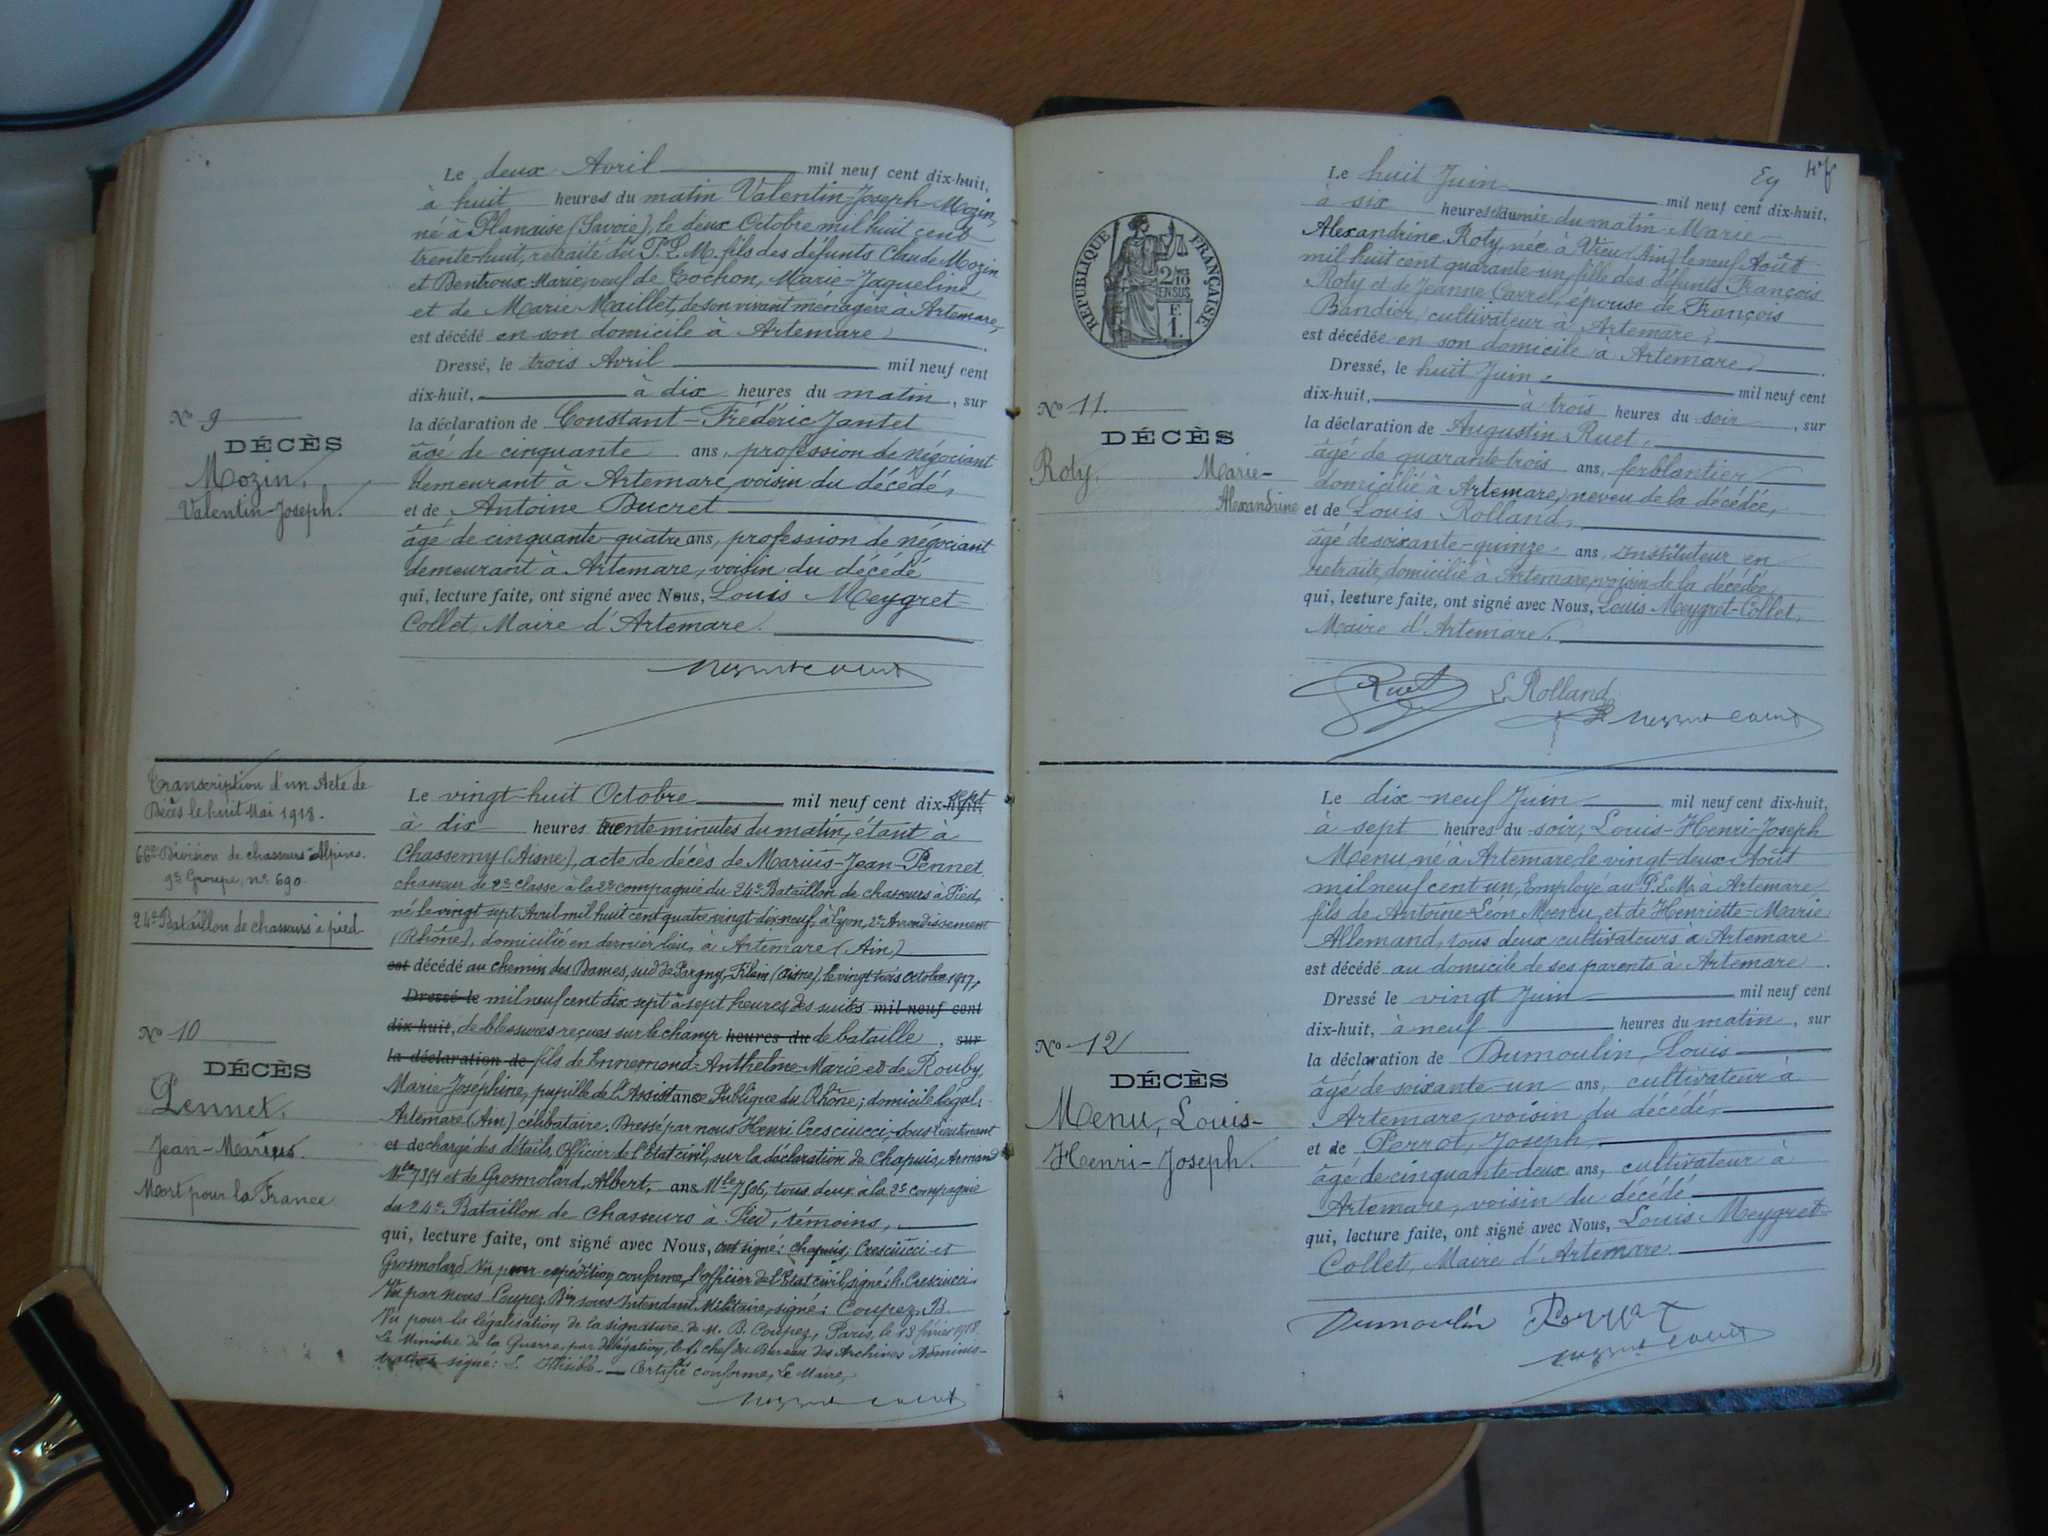 Le deux Avril mil neuf cent dix-huit,
à huit heures du matin Valentin-Joseph Mozin,
né à Planaise (Savoie), le deux Octobre mil huit cent
trente-huit, retraité du P.L.M. fils des défunts Claude Mozin
et Bentroux Marie, veuf de Cochon, Marie-Jaqueline
et de Marie Maillet, de son vivant ménagère à Artemare,
est décédé en son domicile à Artemare.
Dressé, le trois Avril mil neuf cent
dix-huit, à dix heures du matin, sur
la déclaration de Constant-Frédéric Jantet
âgé de cinquante ans, profession de négociant
demeurant à Artemare, voisin du décédé,
et de Antoine Ducret
âgé de cinquante-quatre ans, profession de négociant
demeurant à Artemare, voisin du décédé
qui, lecture faite, ont signé avec Nous, Louis Meygret-
Collet, Maire d'Artemare.
No 9
DÉCÈS
Mozin,
Valentin-Joseph.
Transcription d'un Acte de
Décès le huit Mai 1918.
66e Division de chasseurs Alpins.
9e Groupe, no 690.
24e Bataillon de chasseurs à pied
No 10
DÉCÈS
Pennet,
Jean-Marius.
Mort pour la France
Le vingt-huit Octobre mil neuf cent dix-huit, sept
à dix heures trente minutes du matin, étant à
Chassemy (Aisne), acte de décès de Marius-Jean-Pennet
chasseur de 2e classe à la 2e compagnie du 24e Bataillon de chasseurs à Pied,
né le vingt sept Avril mil huit cent quatre-vingt-dix-neuf à Lyon, 2e Arrondissement
(Rhône), domicilié en dernier lieu, à Artemare (Ain)
est décédé au chemin des Dames, sud de Pargny, Filain (Aisne), le vingt trois octobre 1917,
Dressé le mil neuf cent dix sept à sept heures, des suites mil neuf cent
dix-huit, de blessures reçues sur le champ heures du de bataille, sur
la déclaration de fils de Ennemond-Anthelme-Marie et de Rouby
Marie-Joséphine, pupille de l'Assistance Publique du Rhône; domicile légal:
Artemare (Ain) célibataire. Dressé par nous Henri Cresciucci, Sous lieutenant
et de chargé des détails, Officier de l'Etat civil, sur la déclaration de Chapuis, Armand
Mle et de Grosmolard, Albert, ans Mle 7506, tous deux à la 2e compagnie
du 24e Bataillon de Chasseurs à Pied, témoins,
qui, lecture faite, ont signé avec Nous, ont signé: Chapuis, Cresciucci et
Grosmolard. Vu pour expédition conforme, l'officier de l'Etat civil, signé: h. Cresciucci.
Vu par nous Coupez Bin sous Intendant Militaire, signé: Coupez, B.
Vu pour la légalisation de la signature de M. B. Coupez, Paris, le 13 février 1918.
Le Ministre de la Guerre, par délégation, le chef du Bureau des Archives Adminis-
tratives signé: Illisible. Certifié conforme, Le Maire,
Ey
REPUBLIQUE FRANÇAISE
2/10 EN SUS
F. 1.
Le huit Juin mil neuf cent dix-huit,
à six heures du matin Marie
Alexandrine Roty, née à Vieu (Ain) le neuf Août
mil huit cent quarante-un, fille des défunts François
Roty et de Jeanne Carrel, épouse de François
Bandior, cultivateur à Artemare,
est décédée en son domicile à Artemare.
Dressé, le huit Juin mil neuf cent
dix-huit, à trois heures du soir, sur
la déclaration de Augustin Ruet,
âgé de quarante-trois ans, ferblantier
domicilié à Artemare, neveu de la décédée,
et de Louis Rolland,
âgé de soixante-quinze ans, instituteur en
retraite, domicilié à Artemare, voisin de la décédée,
qui, lecture faite, ont signé avec Nous, Louis Meygret-Collet,
Maire d'Artemare.
Ruet L Rolland
No 11.
DÉCÈS
Roty, Marie-
Alexandrine
Le dix-neuf Juin mil neuf cent dix-huit,
à sept heures du soir, Louis-Henri-Joseph
Menu, né à Artemare, le vingt-deux Août
mil neuf cent un, Employé au P.L.M. à Artemare,
fils de Antoine-Léon Menu, et de Henriette-Marie
Allemand, tous deux cultivateurs à Artemare
est décédé au domicile de ses parents à Artemare.
Dressé le vingt Juin mil neuf cent
dix-huit, à neuf heures du matin, sur
la déclaration de Dumoulin, Louis
âgé de soixante-un ans, cultivateur à
Artemare, voisin du décédé,
et de Perrot, Joseph
âgé de cinquante-deux ans, cultivateur à
Artemare, voisin du décédé
qui, lecture faite, ont signé avec Nous, Louis Meygret-
Collet, Maire d'Artemare.
Dumoulin Perrot
No 12
DÉCÈS
Menu, Louis-
Henri-Joseph.